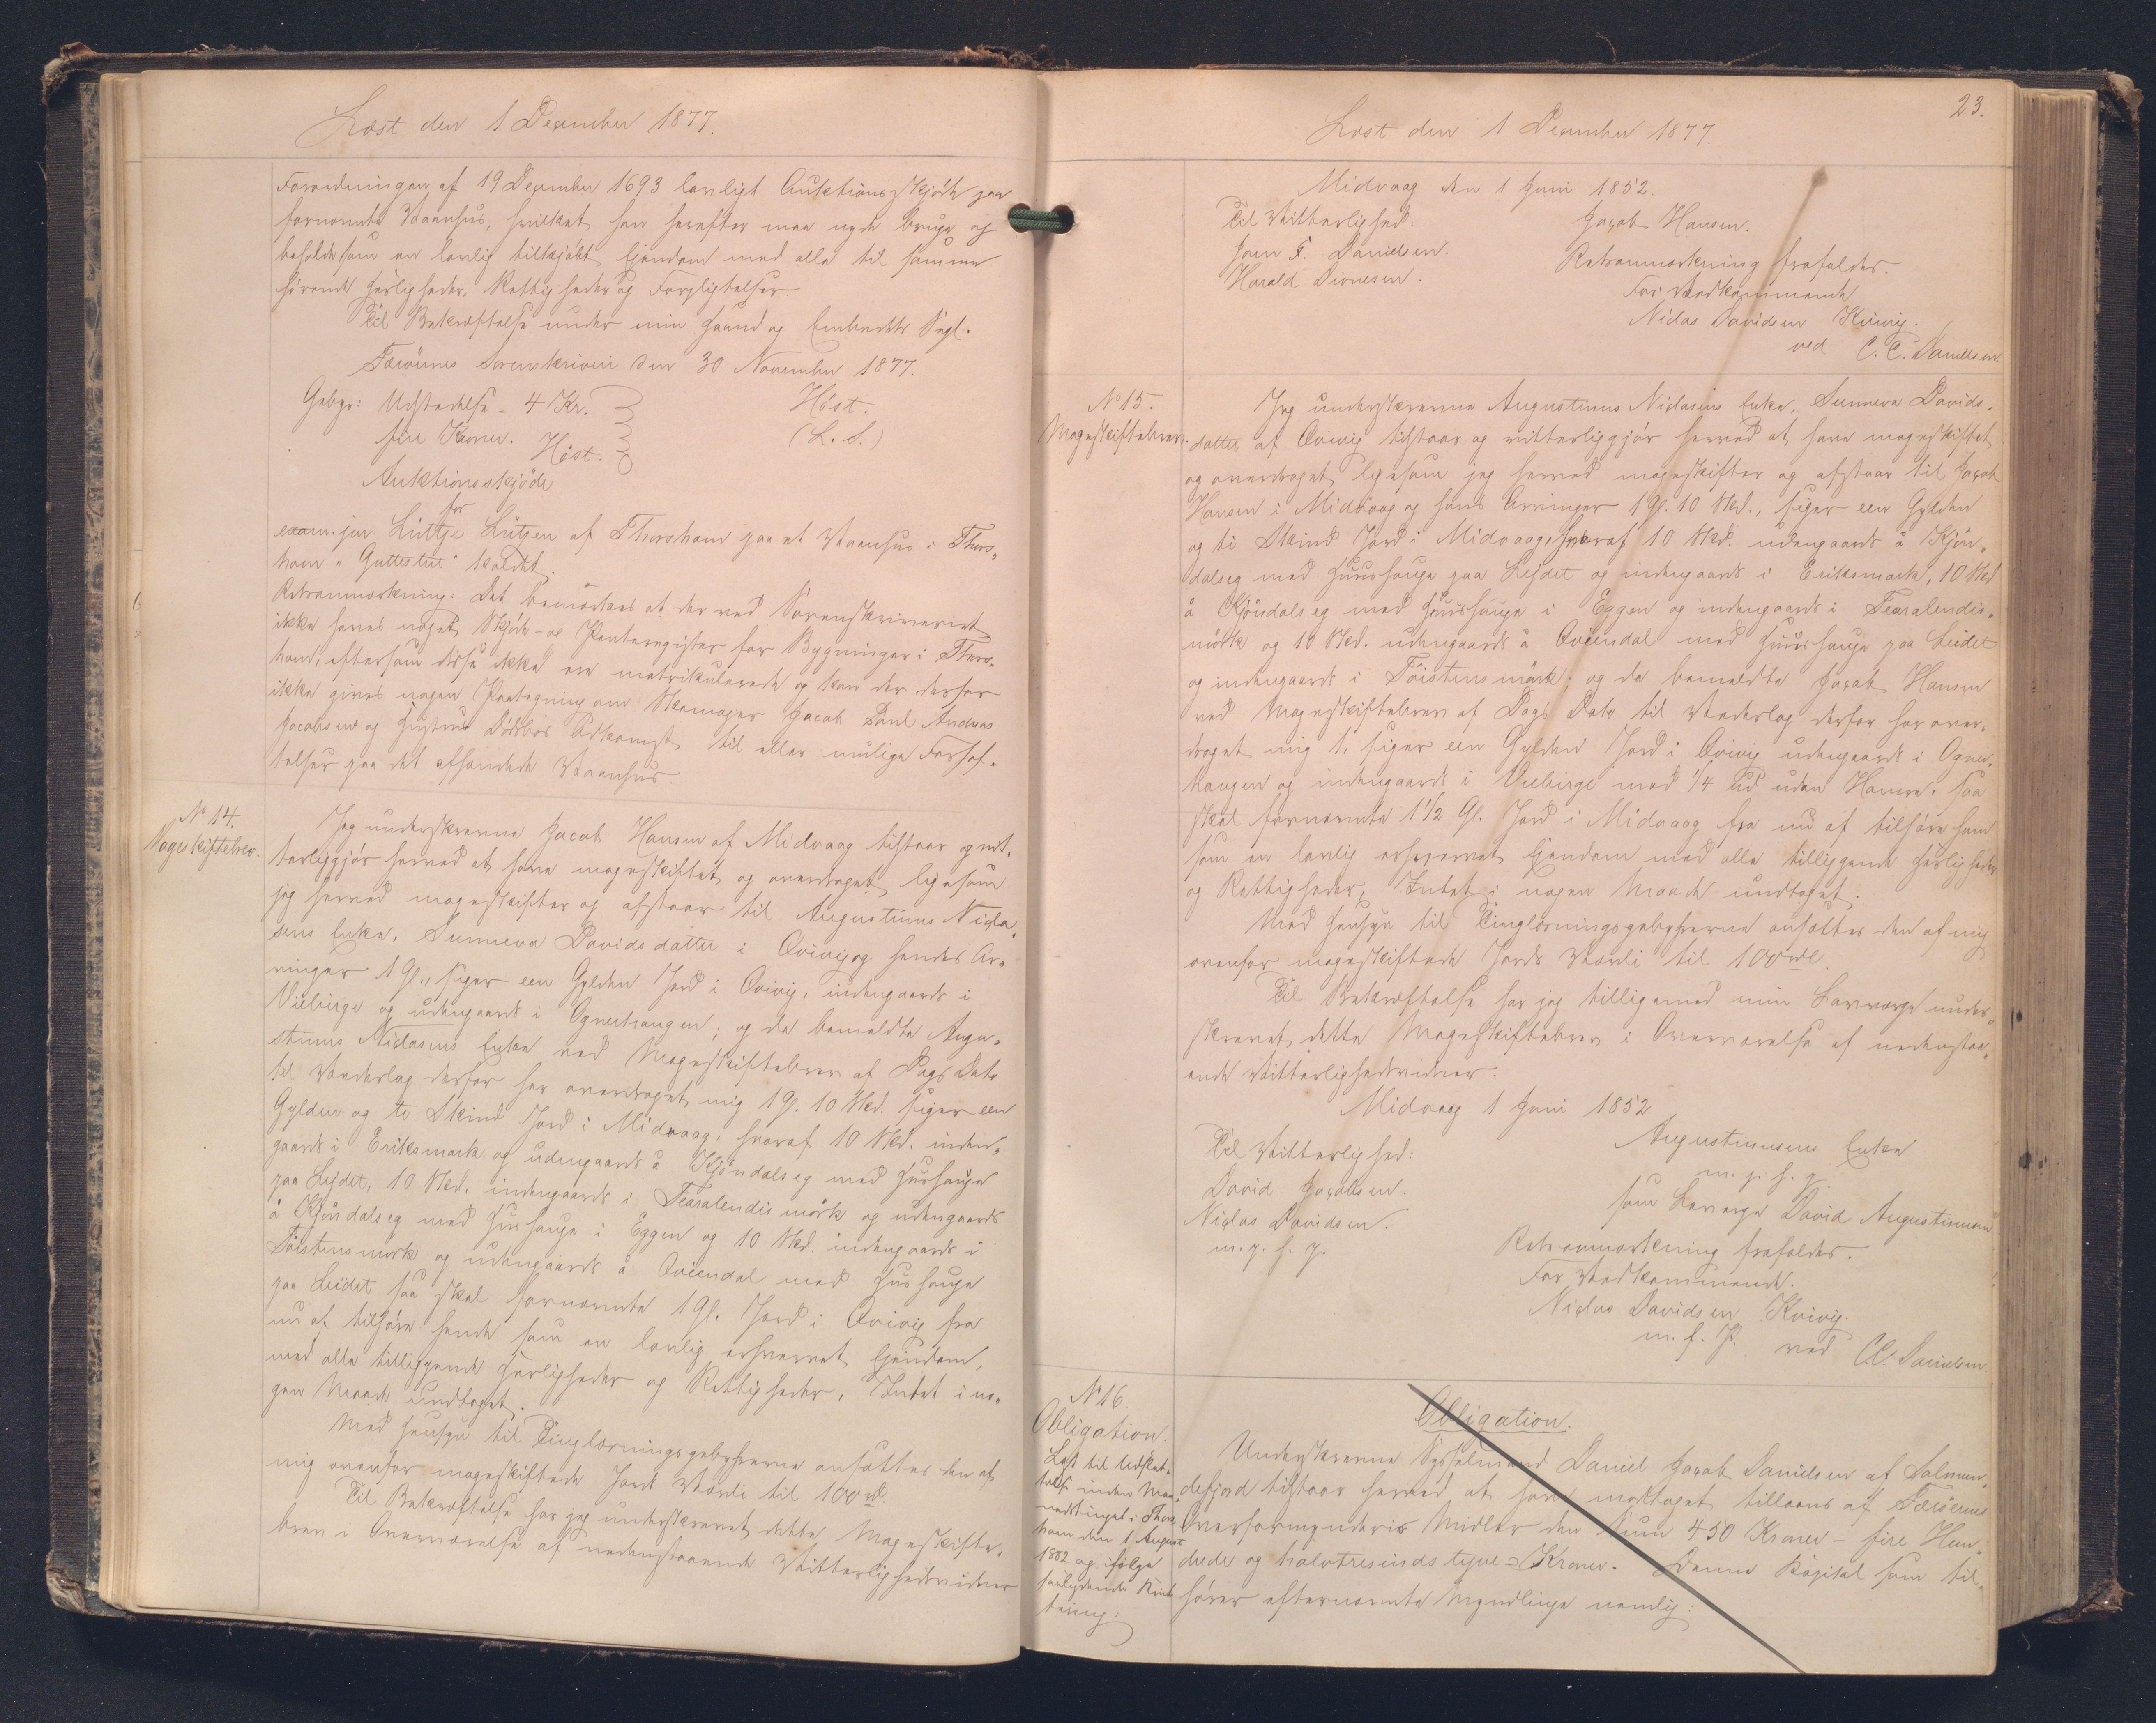 Læst den 1 December 1877.
Forordningen af 19 December 1693 lovligt Auktionsskjøde paa
fornævnte Vaanhus, hvilket han herefter maa nyde bruge og
beholde som en lovlig tilkjøbt Ejendom med alle til samme
hørende Herligheder, Rettigheder og Forpligtelser.
Til Bekræftelse under min Haand og Embedets Segl.
Færöernes Sorenskriveri den 30 November 1877.
Gebyr: Udstedelse - 4 Kr.
fire Kroner.
Höst.
Höst.
(L. S.)
Auktionsskjöde
for
exam. jur. Lüttje Lützen af Thorshavn paa et Vaanhus i Thors-
havn "Guttestue" kaldet.
Retsanmærkning: Det bemærkes at der ved Sorenskriveriet
ikke haves noget Skjøde- og Panteregister for Bygninger i Thors-
havn, eftersom disse ikke ere matrikulerede og kan der derfor
ikke gives nogen Paategning om Skomager Jacob Poul Andreas
Jacobsens og Hustrus Dødsbos Adkomst til eller mulige Forhæf-
telser paa det afhændede Vaanhus.
No 14.
Mageskiftebrev.
Jeg underskrevne Jacob Hansen af Midvaag tilstaar og vit-
terliggjør herved at have mageskiftet og overdraget, ligesom
jeg herved mageskifter og afstaar til Augustinus Nicla-
sens Enke, Sunneva Davidsdatter i Qvivig og hendes Ar-
vinger 1 Gl., siger een Gylden Jord i Qvivig, indengaards i
Viebirge og udengaards i Ognerhaugen; og da bemeldte Augu-
stinus Niclasens Enke ved Mageskiftebrev af Dags Dato
til Vederlag derfor har overdraget mig 1 Gl. 10 Skd. siger een
Gylden og ti Skind Jord i Midvaag, hvoraf 10 Skd. inden-
gaards i Eriksmark og udengaards å Kjöndalseg med Hushauge
paa Lejdet, 10 Skd. indengaards i Fearalendismörk og udengaards
å Kjöndalseg med Hushauge i Eggen og 10 Skd. indengaards i
Töistensmörk og udengaards å Qviendal med Hushauge
paa Leidet saa skal fornævnte 1 Gl. Jord i Qvivig fra
nu af tilhøre hende som en lovlig erhvervet Ejendom,
med alle tilliggende Herligheder og Rettigheder, Intet i no-
gen Maade undtaget.
Med Hensyn til Tinglæsningsgebyrerne ansættes den af
mig ovenfor mageskiftede Jords Værdi til 100 rdl.
Til Bekræftelse har jeg underskrevet dette Mageskifte-
brev i Overværelse af nedenstaaende Vitterlighedsvidner
23.
Læst den 1 December 1877.
Midvaag den 1 Juni 1852.
Til Vitterlighed.
Jacob Hansen.
Joen F. Danielsen.
Harald Dionesen.
Retsanmærkning frafaldes.
For Vedkommende
Niclas Davidsen Kvivig.
ved C. C. Danielsen.
No 15.
Mageskiftebrev.
Jeg underskrevne Augustinus Niclasens Enke, Sunneva Davids-
datter af Qvivig tilstaar og vitterliggjør herved at have mageskiftet
og overdraget, ligesom jeg herved mageskifter og afstaar til Jacob
Hansen i Midvaag og hans Arvinger 1 Gl. 10 Skd., siger een Gylden
og ti Skind Jord i Midvaag, hvoraf 10 Skd. udengaards å Kjön-
dalseg med Huushauge paa Lejdet og indengaards i Eriksmark, 10 Skd
å Kjöndalseg med Huushauge i Eggen og indengaards i Fearalendis-
mörk og 10 Skd. udengaards å Qviendal med Huushauge paa Leidet
og indengaards i Töistensmörk; og da bemeldte Jacob Hansen
ved Mageskiftebrev af Dags Dato til Vederlag derfor har over-
draget mig 1, siger een Gylden Jord i Qvivig udengaards i Ogner-
haugen og indengaards i Viebirge med 1/4 Lid uden Hamre. saa
skal fornævnte 1 1/2 Gl. Jord i Midvaag fra nu af tilhøre ham
som en lovlig erhvervet Ejendom med alle tilliggende Herligheder
og Rettigheder, Intet i nogen Maade undtaget.
Med Hensyn til Tinglæsningsgebyrerne ansættes den af mig
ovenfor mageskiftede Jords Værdi til 100 rdl.
Til Bekræftelse har jeg tilligemed min Lavværge under-
skrevet dette Mageskiftebrev i Overværelse af nedenstaa-
ende Vitterlighedsvidner.
Midvaag 1 Juni 1852.
Til Vitterlighed:
Augustinusens Enke
m. p. h. P.
David Jacobsen.
som Lavværge David Augustinusen
Niclas Davidsen.
m. p. h. P.
Retsanmærkning frafaldes.
For Vedkommende.
Niclas Davidsen Kvivig.
m. f. P. ved C. C. Danielsen.
No 16.
Obligation.
Læst til Udslet-
telse inden Maa-
nedstinget i Thors-
havn den 1 August
1882 og ifølge
Kvit-
tering.
Obligation.
Underskrevne Sysselmand Daniel Jacob Danielsen af Solmun-
defjord tilstaar herved at have modtaget tillaans af Færöernes
Overformynderis Midler den Sum 450 Kroner - fire Hun-
drede og halvtresindstyve Kroner. Denne Kapital som til-
hører efternævnte Myndlinge nemlig: